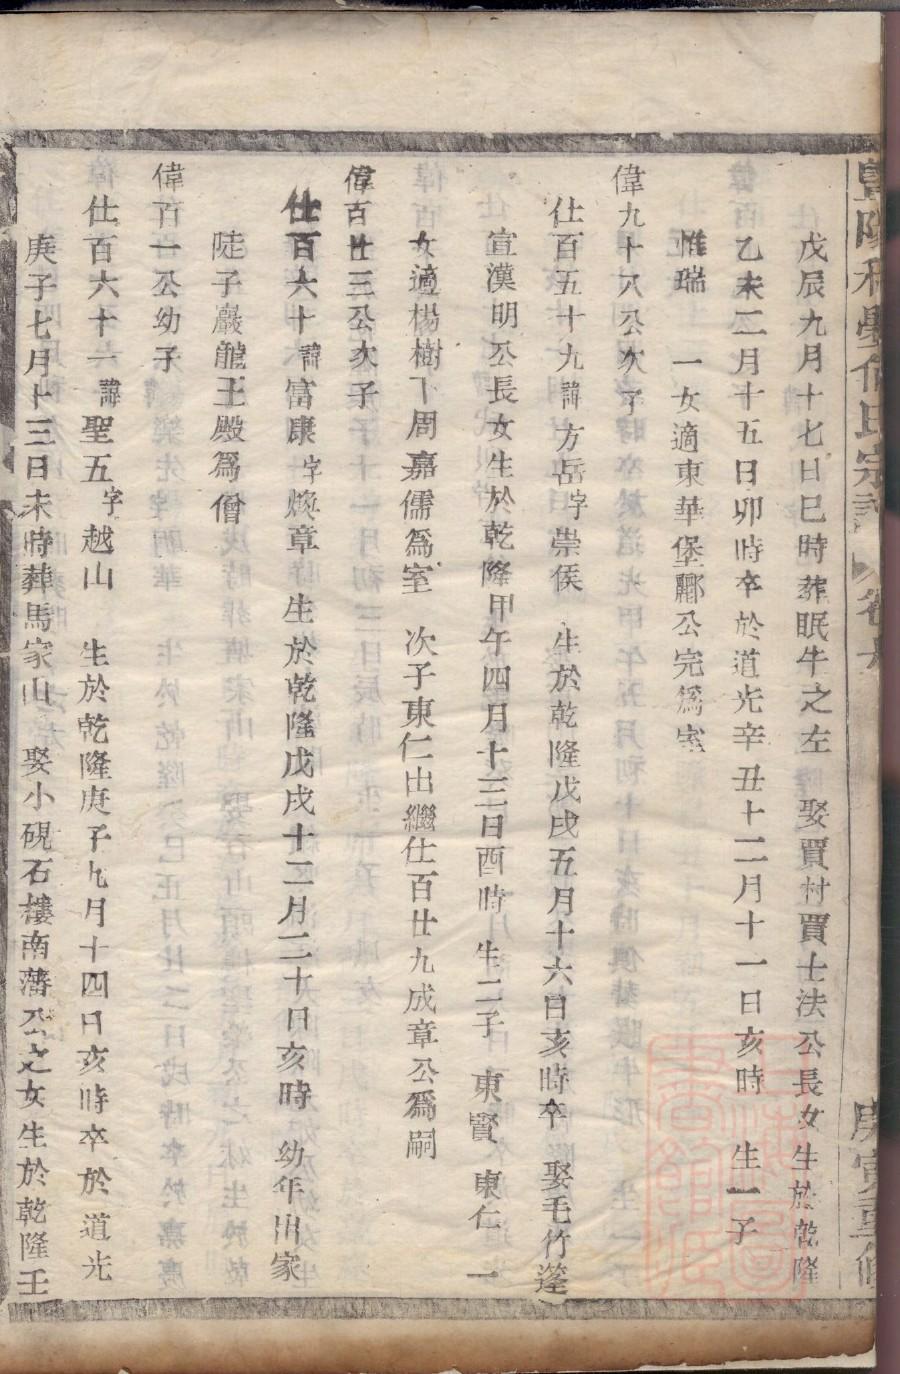 戊辰九月十七日巳時葬眠牛之左　娶賈村賈士法公長女生於乾隆
乙未二月十五日卯時卒於道光辛丑十二月十一日亥時　生一子
惟瑞　一女適東華堡酈公完爲室
偉九十八公次子
仕百五十九諱方岳字崇侯　生於乾隆戊戌五月十六日亥時卒　娶毛竹蓬
宣漢明公長女生於乾隆甲午四月十三日酉時生二子　東賢　東仁　一
女適楊樹下周嘉儒爲室　次子東仁出繼仕百廿九成章公爲嗣
偉百廿三公次子
仕百六十諱富康字煥章　生於乾隆戊戌十二月二十日亥時　幼年出家
陡子巖龍王殿爲僧
偉百一公幼子
仕百六十六諱聖五字越山　生於乾隆庚子九月十四日亥時卒於道光
庚子七月十三日未時葬馬家山　娶小硯石樓南藩公之女生於乾隆壬